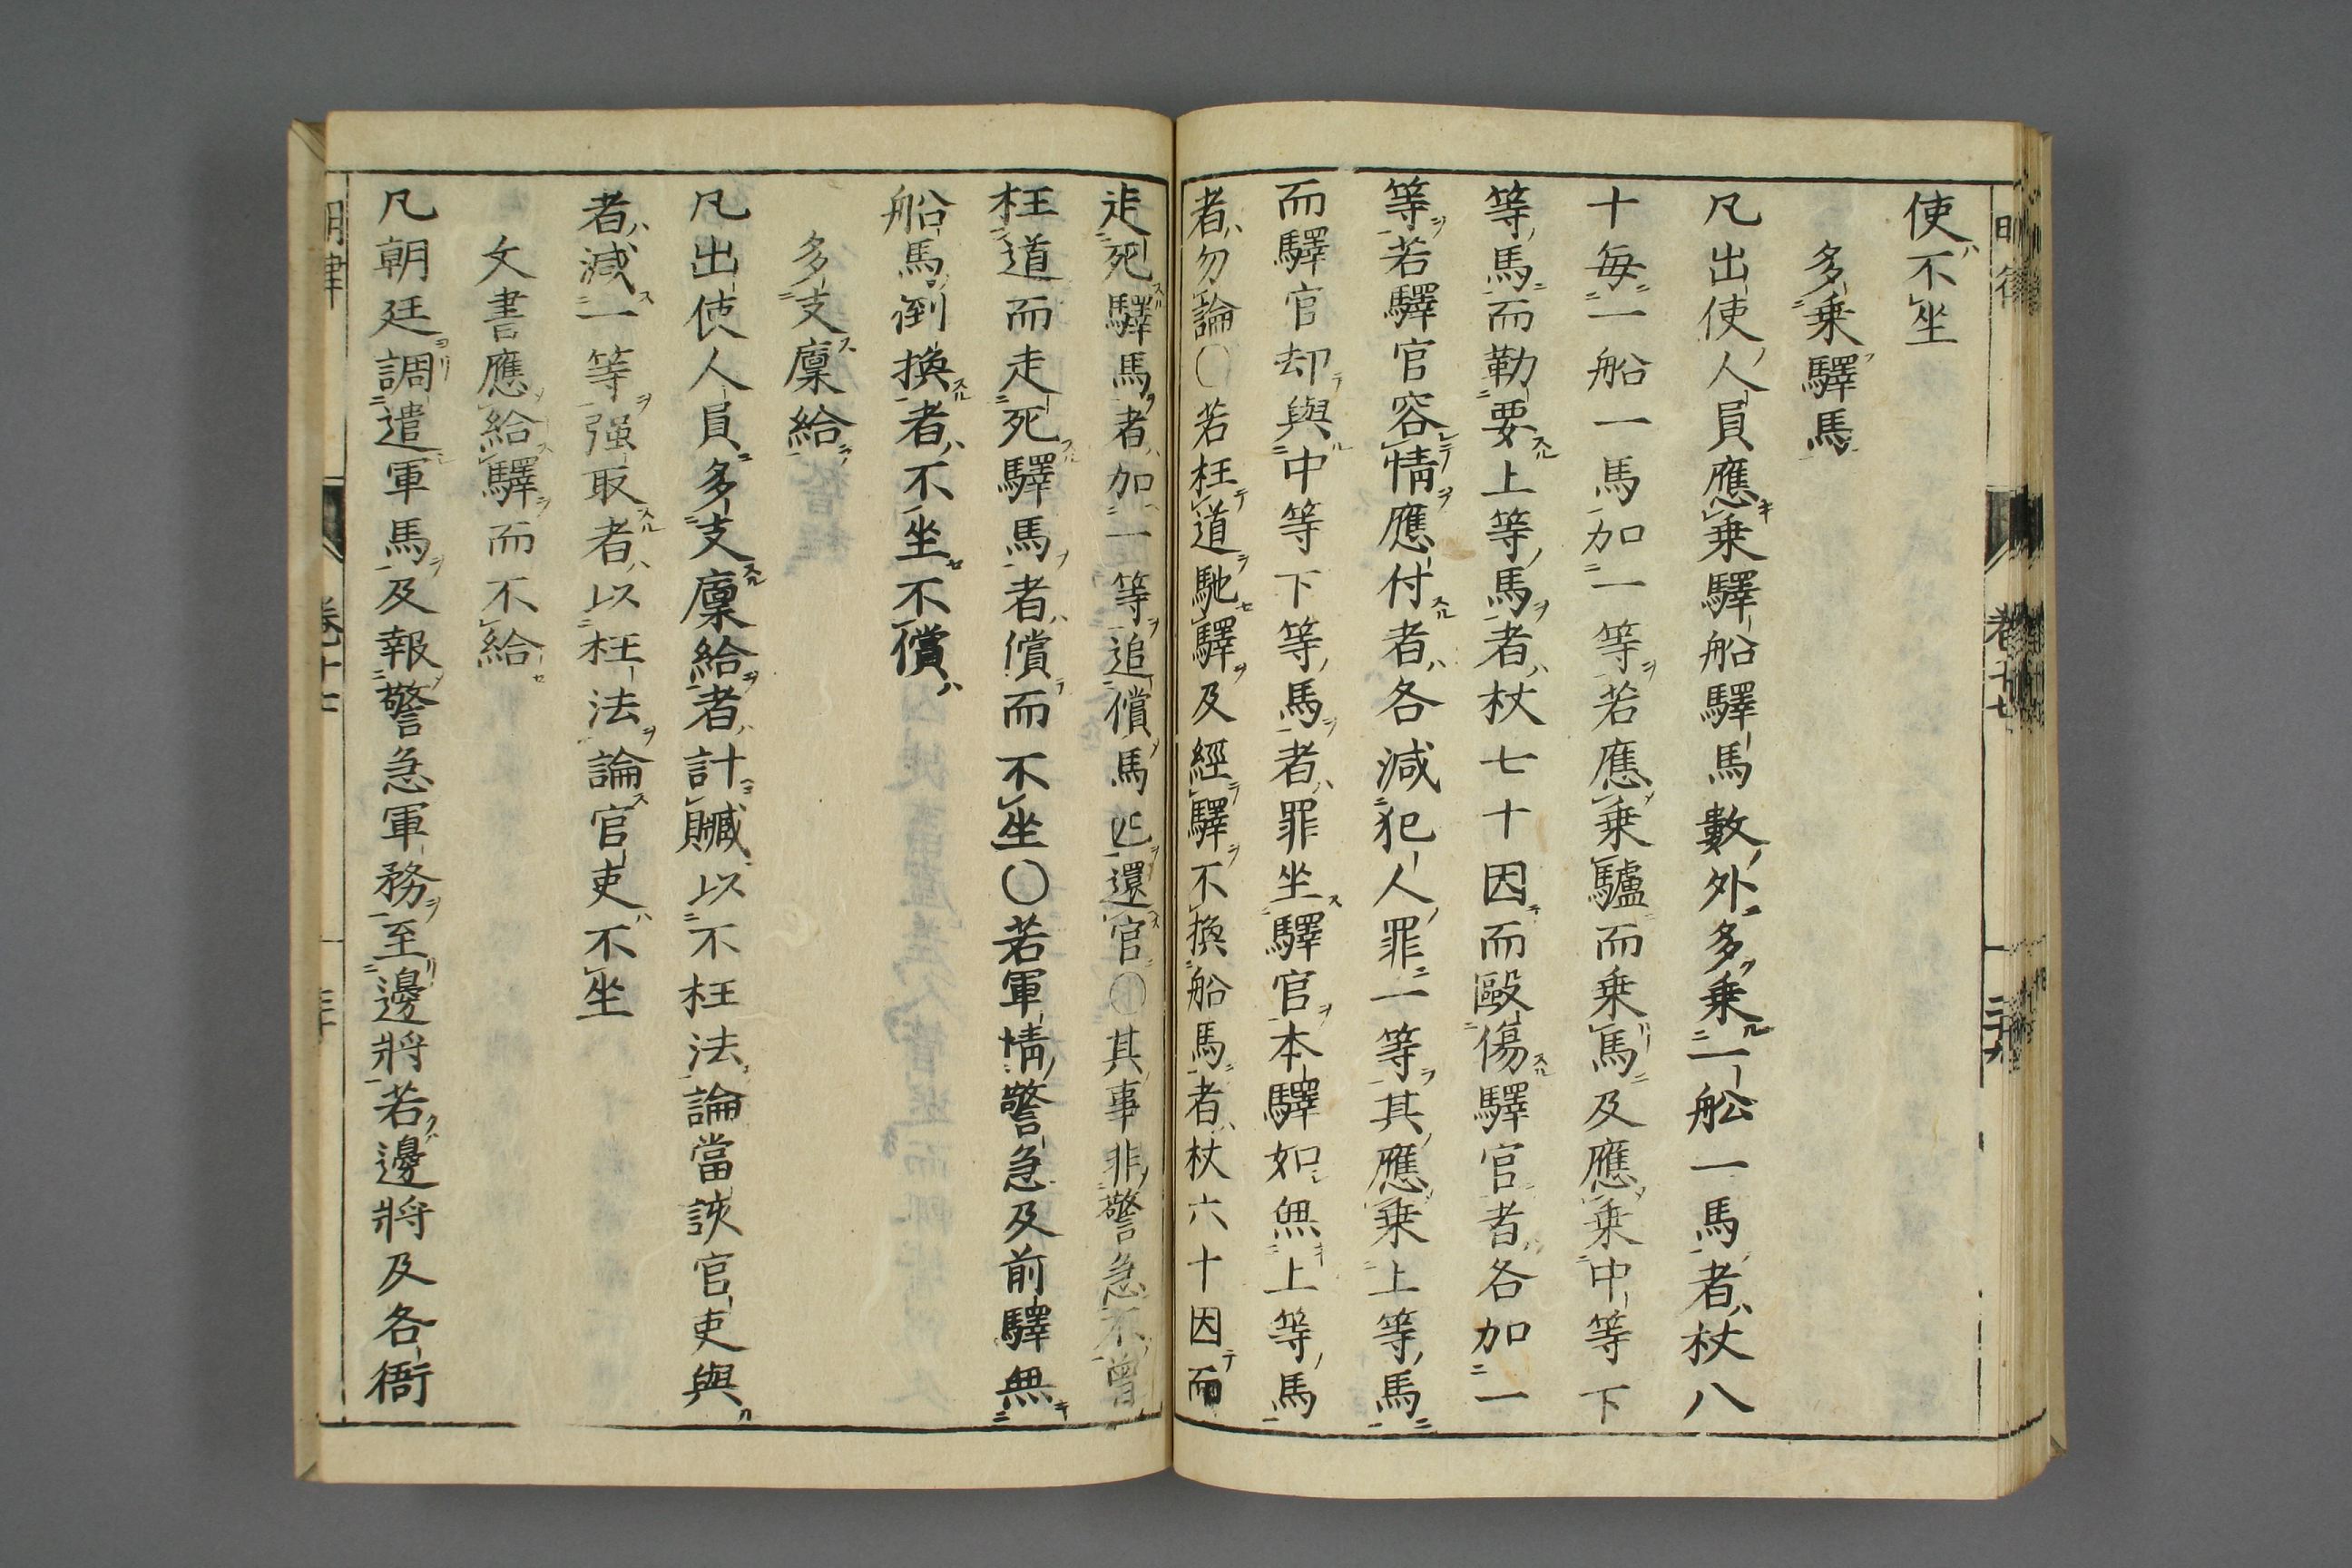 使不坐
多乗驛馬
凡出使人員應乗驛船驛馬數外多乗一舩一馬者杖八
十毎一船一馬加一等若應乗驢而乗馬及應乗中等下
等馬而勒要上等馬者杖七十因而毆傷驛官者各加一
等若驛官容情應付者各減犯人罪一等其應乗上等馬
而驛官却與中等下等馬者罪坐驛官本驛如無上等馬
者勿論〇若枉道馳驛及經驛不換船馬者杖六十因而
走死驛馬者加一等追償馬匹還官〇其事非警急不曾
枉道而走死驛馬者償而不坐〇若軍情警急及前驛無
船馬倒換者不坐不償
多支廩給
凡出使人員多支廩給者計贓以不枉法論當該官吏與
者減一等强取者以枉法論官吏不坐
文書應給驛而不給
凡朝廷調遣軍馬及報警急軍務至邊將若邊將及各衙